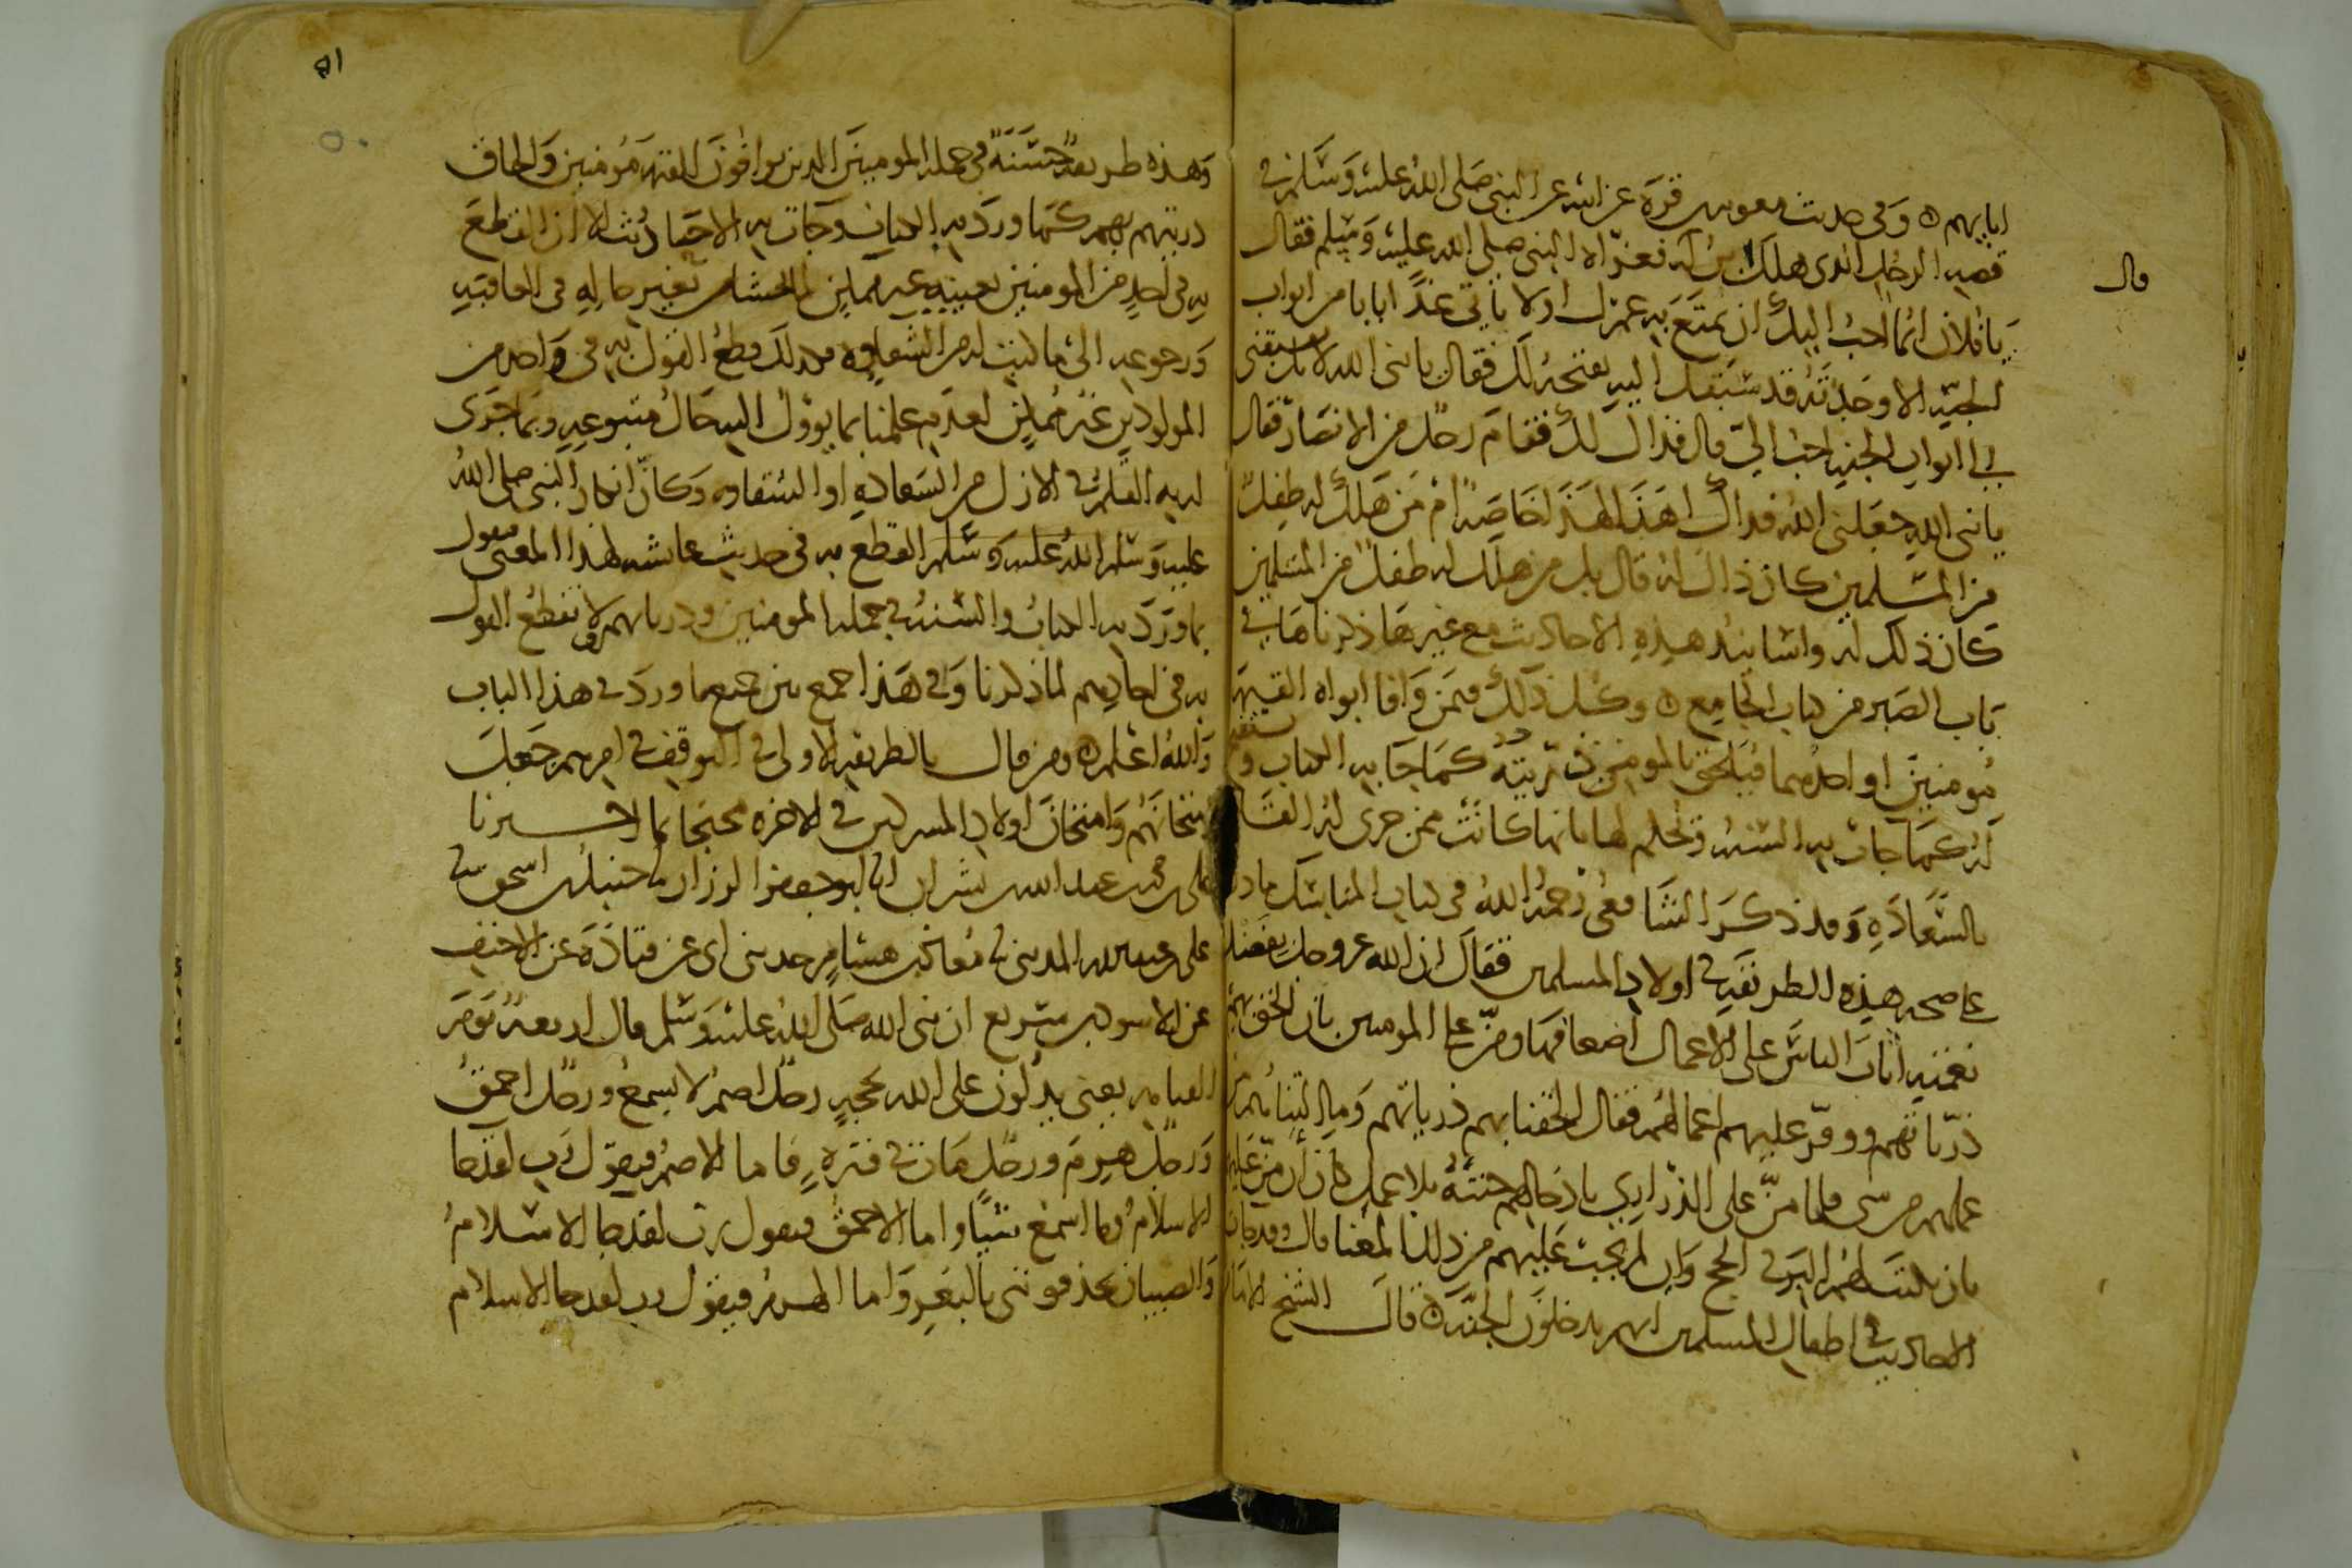 ابايهم ٥ وفي حديث معويه بن قرة عن ابيه عن النبي صلى الله عليه وسلم في
قصه الرجل الذي هلك ابن له فعزاه النبي صلى الله عليه وسلم فقال
قال
يا فلان انما احب اليك ان تمتع به عمرك او لا تاتي غدا بابا من ابواب
الجنه الا وجدته قد سبقك اليه يفتحه لك فقال يا نبي الله لا بل يسبقني
الى ابواب الجنه احب الي قال فذاك لك فقام رجل من الانصار فقال
يا نبي الله جعلني الله فداك اهذا لهذا خاصة ام من هلك له طفل
من المسلمين كان ذاك له قال بل من هلك له طفل من المسلمين
كان ذلك له واسانيد هذه الاحاديث مع غيرها ذكرناها في
باب الصبر من كتاب الجامع ٥ وكل ذلك فيمن وافا ابواه القيمه
مومنين او احدهما فيلحق بالمومن ذريته كما جا به الكتاب و يستفتح
له كما جات به السنه وتحكم لها بانها كانت ممن جرى له القلم
بالسعاده وقد ذكر الشافعي رحمه الله في كتاب المناسك ما دل
على صحه هذه الطريقه في اولاد المسلمين فقال ان الله عز وجل بفضل
نعمته اثاب الناس على الاعمال اضعافها ومن على المومنين بان الحق بهم
ذرياتهم ووفر عليهم اعمالهم فقال الحقنا بهم ذرياتهم وما التناهم من
عملهم من شي فلما من على الذراري بادخالهم جنته بلا عمل كان ان من عليهم
بان يكتب لهم البر في الحج وان لم يجب عليهم من ذلك المعنا قال وقد جات
الاحاديث في اطفال المسلمين انهم يدخلون الجنه ٥ قال الشيخ الامام
٥١
٥٠
وهذه طريقة حسنة في جملة المومنين الذين يوافون القيمه مومنين والحاق
ذريتهم بهم كما ورد به الكتاب وجات به الاحاديث الا ان القطع
به في احد من المومنين بعينه غير ممكن لما يخشا من تغير حاله في العاقبه
ورجوعه الى ما كتب له من الشقاوه فكذلك قطع القول به في واحد من
المولودين غير ممكن لعدم علمنا بما يوول اليه حال متبوعه وبما جرى
له به القلم في الازل من السعاده او الشقاوه وكان انكار النبي صلى الله
عليه وسلم الله عليه وسلم القطع به في حديث عايشه لهذا المعنى فنقول
بما ورد به الكتاب والسنه في جملة المومنين وذرياتهم ولا نقطع القول
به في احادهم لما ذكرنا وفي هذا جمع بين جميع ما ورد في هذا الباب
والله اعلم ٥ ومن قال بالطريقه الاولى في التوقف في امرهم جعل
امتحانهم وامتحان اولاد المسركين في الاخره محتجا بما اخبرنا
علي بن محمد بن عبد الله بن بشران انا ابو جعفر الرزاز نا حنبل بن اسحق نا
علي بن عبد الله المديني نا معاذ بن هشام حدثني ابي عن قتاده عن الاحنف
عن الاسود بن سريع ان نبي الله صلى الله عليه وسلم قال اربعة يوم
القيامه يعني يدلون على الله بحجه رجل اصم لا يسمع ورجل احمق
ورجل هرم ورجل مات في فترة فاما الاصم فيقول رب لقد جا
الاسلام وما اسمع شيئا واما الاحمق فيقول رب لقد جا الاسلام
والصبيان يحذفونني بالبعر واما الهرم فيقول رب لقد جا الاسلام